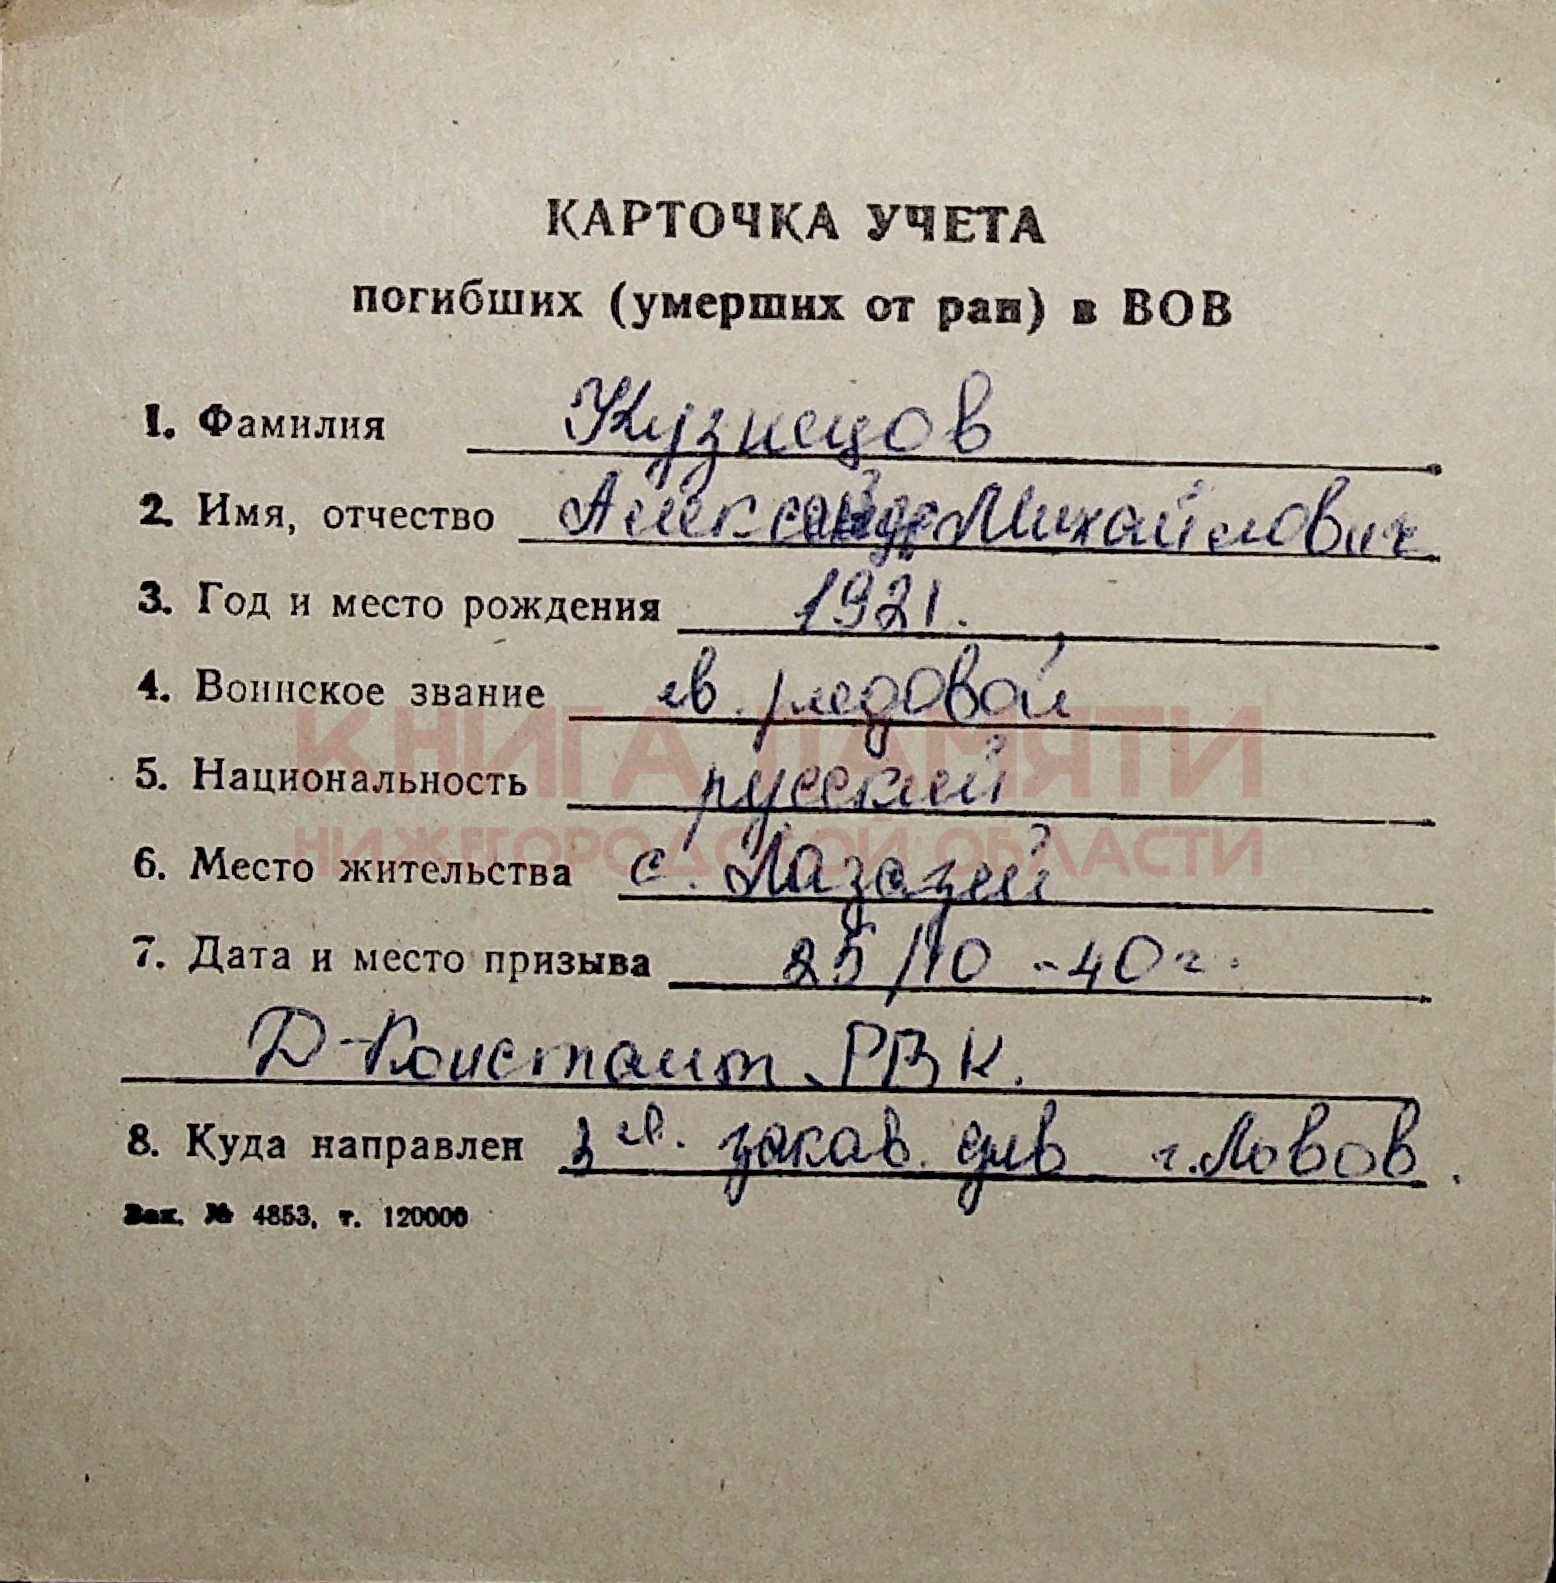 КАРТОЧКА УЧЕТА
погибших (умерших от ран) в ВОВ
1. Фамилия Кузнецов
2. Имя, отчество Александр Михайлович
3. Год и место рождения 1921.
4. Воинское звание гв. рядовой
КНИГА ПАМЯТИ
5. Национальность русский
НИЖЕГОРОДСКОЙ ОБЛАСТИ
6. Место жительства с.
7. Дата и место призыва 25/10-40 г.
Д-Констант. РВК.
8. Куда направлен закав. див г. Львов.
Зак. № 4853, т. 120000